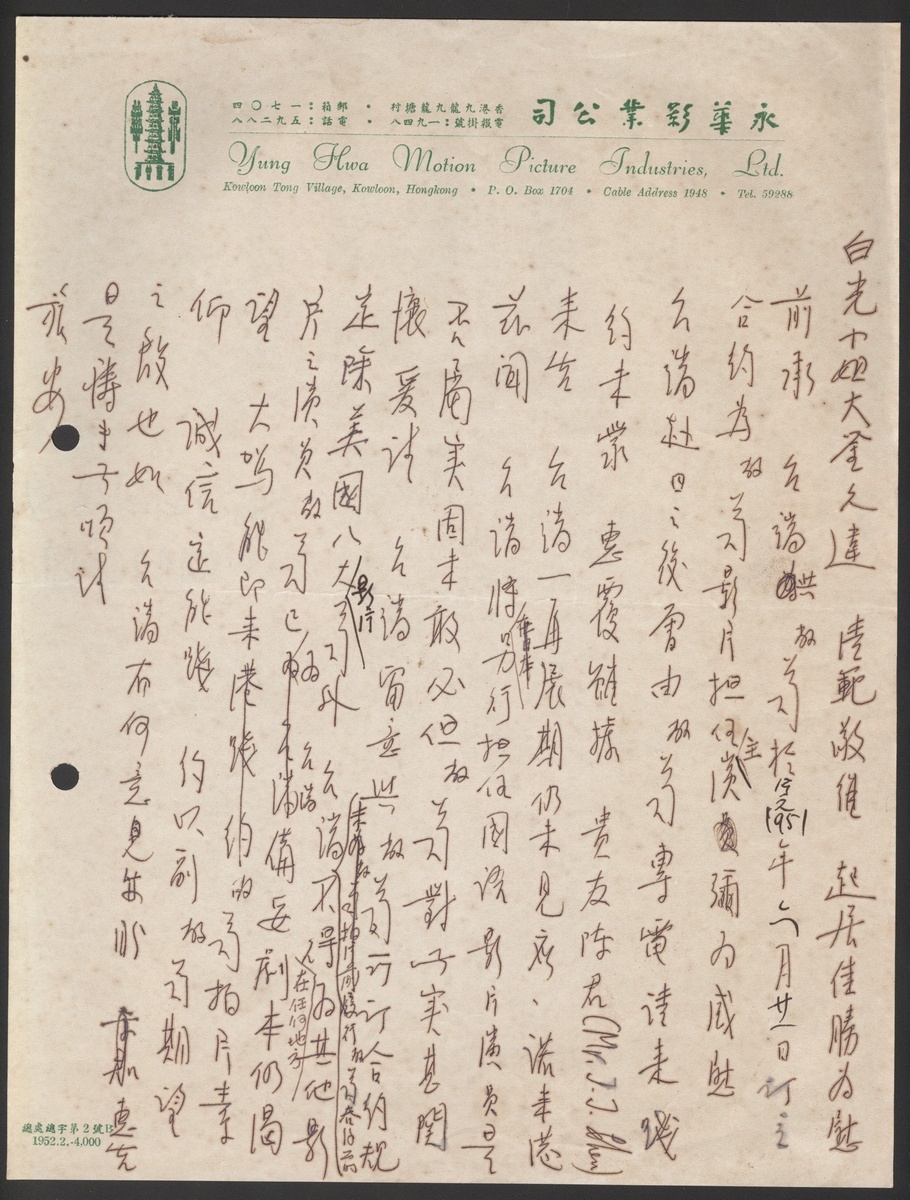 永華影業公司
香港九龍九龍塘村 · 郵箱：一七〇四
電報掛號：一九四八 · 電話：五九二八八
Yung Hwa Motion Picture Industries, Ltd.
Kowloon Tong Village, Kowloon, Hongkong • P. O. Box 1704 • Cable Address 1948 • Tel. 59288
白光小姐大鑒久違 清範敬維 起居佳勝為慰
前承 台端與敝公司於1951年六月廿一日訂立
合約為敝公司影片担任主演彌為感慰
台端赴日之後曾由敝公司專電請来踐
約未蒙 惠覆雖據 貴友陈君(Mr. J. J. Chen)
来告 台端一再展期仍未見 諾来港
茲聞 台端將另行担任國語影片演員是
否屬实固未敢必但敝公司對此实甚関
懷爰請 台端留意與敝公司所订合約規
定除美國八大影片公司外 台端不得為其他影
片之演員敝公司已為台端備妥劇本仍渴
望 大駕能即来港踐約為敝公司拍片素
仰 誠信定能踐 約以副敝公司期望
之殷也如 台端有何意見尚盼 惠告
是禱耑此順請
旅安
在任何地方
總處總字第2號B
1952.2.-4,000